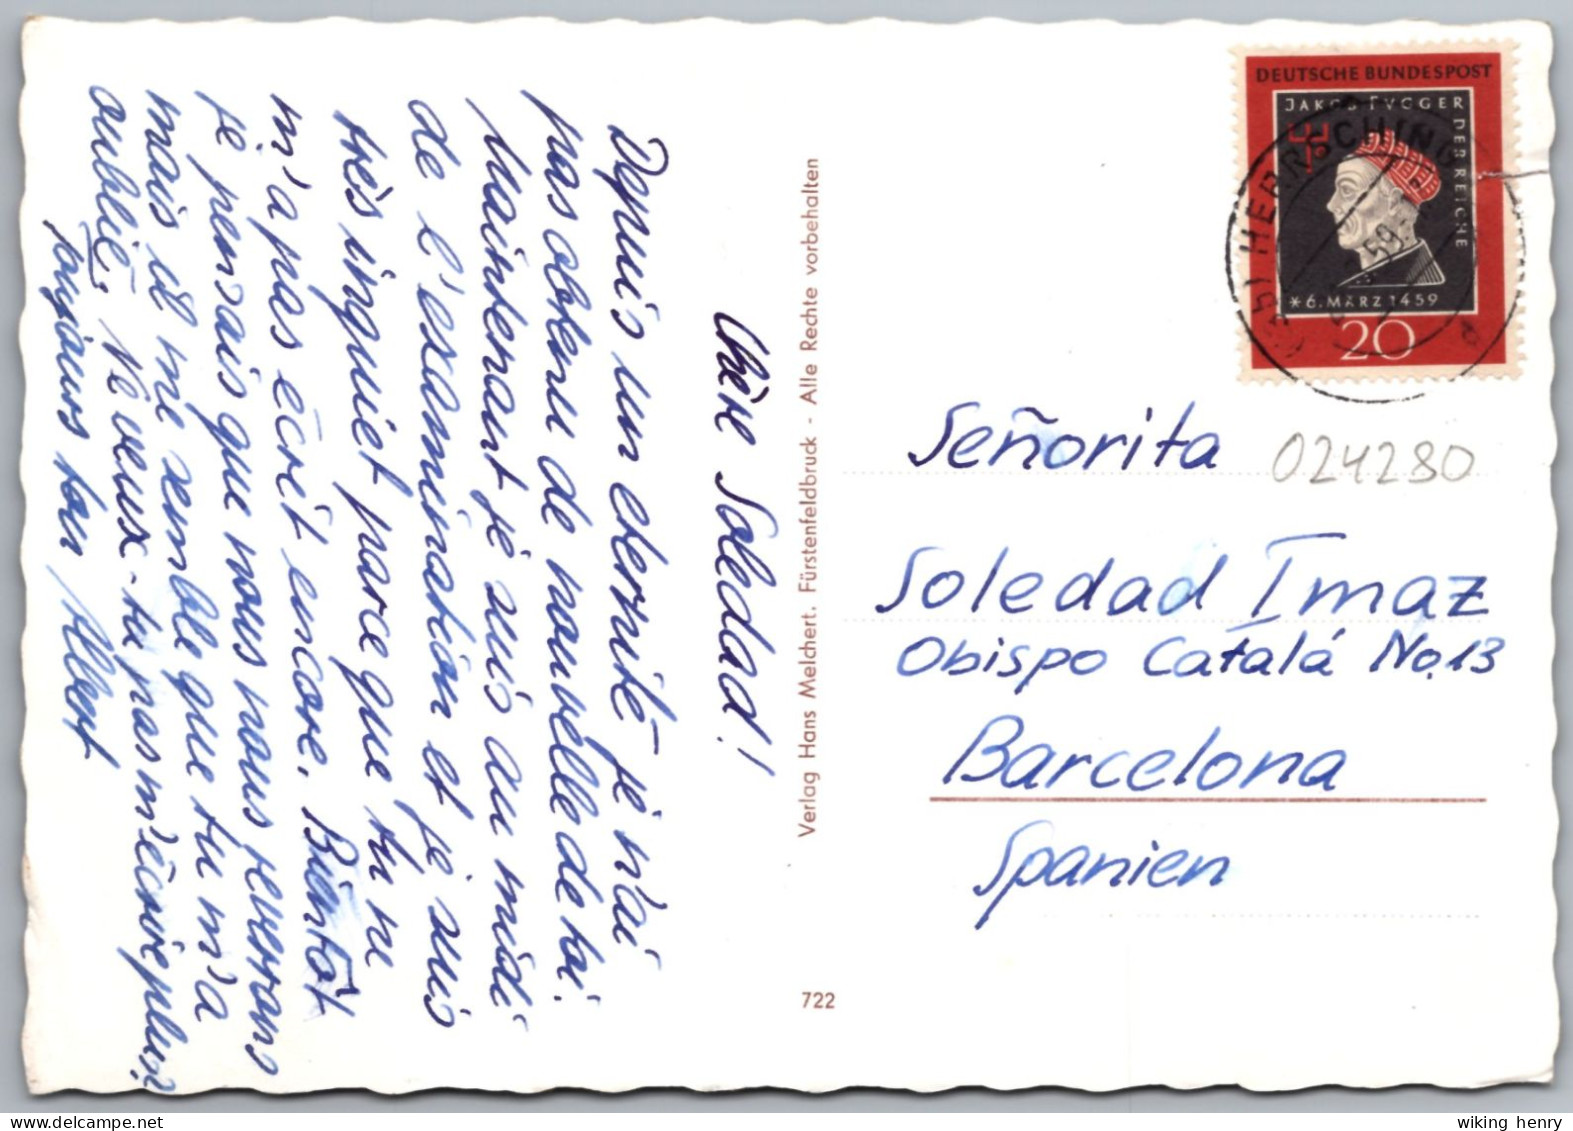 Chère Soledad!
Depuis un eternité je n'ai
pas obtenu de nouvelle de toi.
Maintenant je suis au midi
de l'examination et je suis
très inquiet parce que tu ne
m'a pas écrit encore. Bientôt
je pensais que nous nous reverrons
mais il me semble que tu m'a
oublié. Ne veux-tu pas m'écrire plus
toujours ton Albert
Verlag Hans Melchert. Fürstenfeldbruck - Alle Rechte vorbehalten
722
DEUTSCHE BUNDESPOST
JAKOB FVGGER
DER REICHE
*6. MÄRZ 1459
20
HERRSCHING
59
Señorita
024280
Soledad Imaz
Obispo Catalá No.13
Barcelona
Spanien
wiking henry